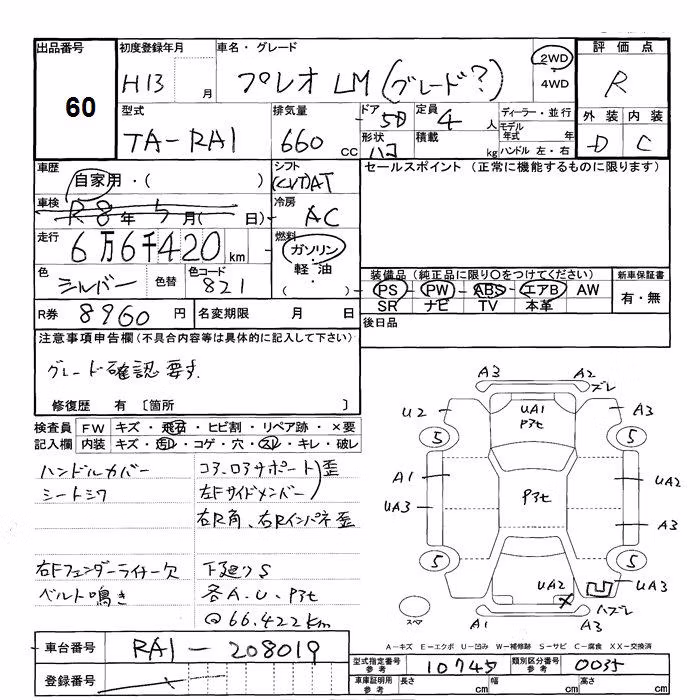 出品番号
60
初度登録年月
H13 月
車名・グレード
プレオ LM (グレード?)
2WD
4WD
評価点
R
型式
TA-RA1
排気量
660 cc
ドア
5D
形状
ハコ
定員
4 人
積載
kg
ディーラー・並行
モデル年式 年
ハンドル 左・右
外装 内装
D C
車歴
自家用・( )
シフト
(CVT)AT
セールスポイント (正常に機能するものに限ります)
車検
R8年5月( 日)
冷房
AC
走行
6万6千420km
燃料
ガソリン・
軽油・
( )
色
シルバー
色替
色コード
821
装備品 (純正品に限り○をつけてください)
PS PW ABS エアB AW
SR ナビ TV 本革
新車保証書
有・無
R券
8960円
名変期限 月 日
後日品
注意事項申告欄(不具合内容等は具体的に記入して下さい)
グレード確認要す.
修復歴 有 〔箇所 〕
検査員 FW キズ・飛石・ヒビ割・リペア跡・×要
記入欄 内装 キズ・汚レ・コゲ・穴・スレ・キレ・破レ
ハンドルカバー
シートシワ
右Fフェンダーライナー欠
ベルト鳴き
コアロアサポート)歪
左Fサイドメンバー
右R角、右Rインパネ歪
下廻りS
各A.U.P3t
@66.422km
A3 A2 ズレ
U2 UA1 P3t A3
5 5
A1 P3t UA2
UA3 A3
5 5
UA2 UA3
スペア A1 ハズレ A3
A-キズ E-エクボ U-凹み W-補修跡 S-サビ C-腐食 XX-交換済
車台番号
RA1-208019
登録番号
型式指定番号 参考
10745
類別区分番号 参考
0035
車庫証明用 参考
長さ cm 幅 cm 高さ cm